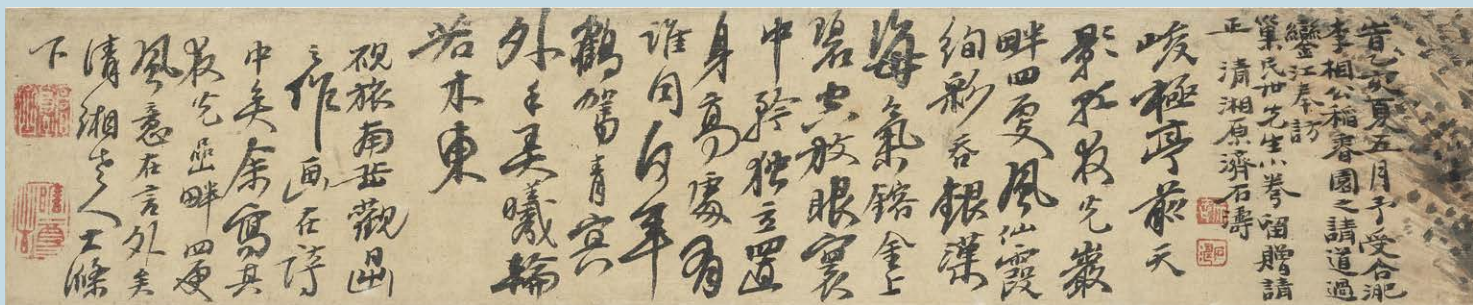 昔乙亥夏五月予受合淝
李相公稻香園之請道過
鑾江奉訪
巢民世先生小卷留贈請
正 清湘原濟石濤
峻極亭前天
影紅放光巖
畔四更風仙霞
絢彩吞銀漢
海氣鎔金上
碧空放眼寰
中矜独立置
身高處有
誰同何年
鶴駕青冥
外手弄曦輪
若木東
硯旅南岳觀日出
之作画在詩
中矣余寫其
放光巖畔四更
風意在言外矣
清湘老人大滌
下